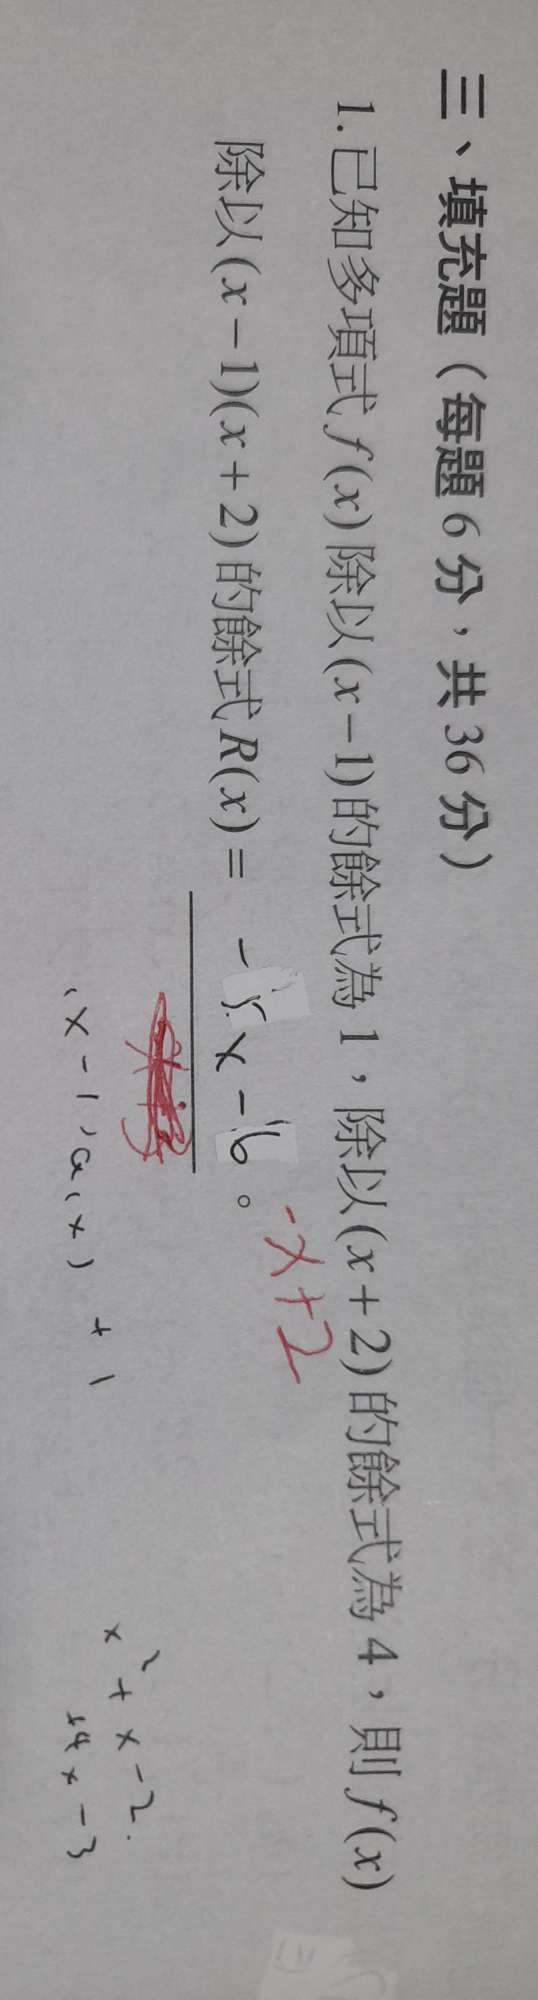 三、填充題（每題6分，共36分）
1.已知多項式f(x)除以(x−1)的餘式為1，除以(x+2)的餘式為4，則f(x)
除以(x−1)(x+2)的餘式R(x)= −5x−6。
-x+2
(x-1)Q(x) +1
x²+x-2
+4x-3